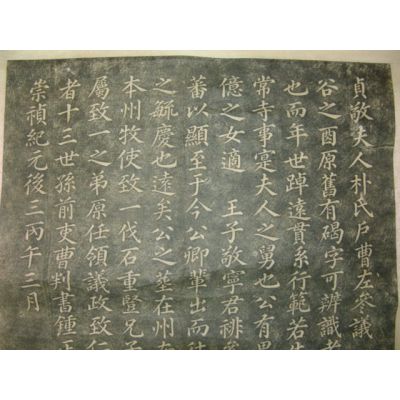 貞敬夫人朴氏戶曹左參議
谷之酉原舊有碣字可辨識者
也而年世踔遠貫系行範若生
常寺事寔夫人之舅也公有男
億之女適 王子敬寧君裶
蕃以顯至于今公卿輩出而
之毓慶也遠矣公之塋在州
本州牧使致一伐石重豎兄子
屬致一之弟原任領議政致仁
者十三世孫前吏曹判書鍾正
崇禎紀元後三丙午三月